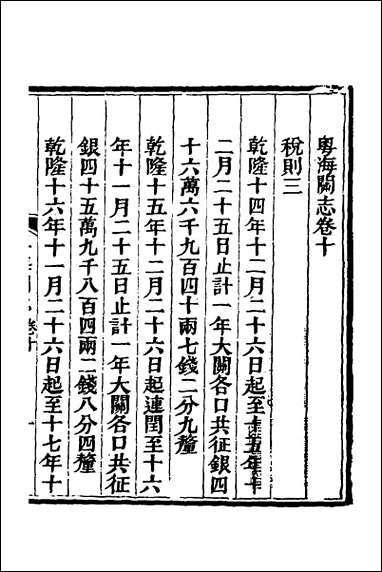 粵海關志卷十
稅則三
乾隆十四年十二月二十六日起至十五年十
二月二十五日止計一年大關各口共征銀四
十六萬六千九百四十兩七錢二分九釐
乾隆十五年十二月二十六日起連閏至十六
年十一月二十五日止計一年大關各口共征
銀四十五萬九千八百四兩二錢八分四釐
乾隆十六年十一月二十六日起至十七年十
卷十
一